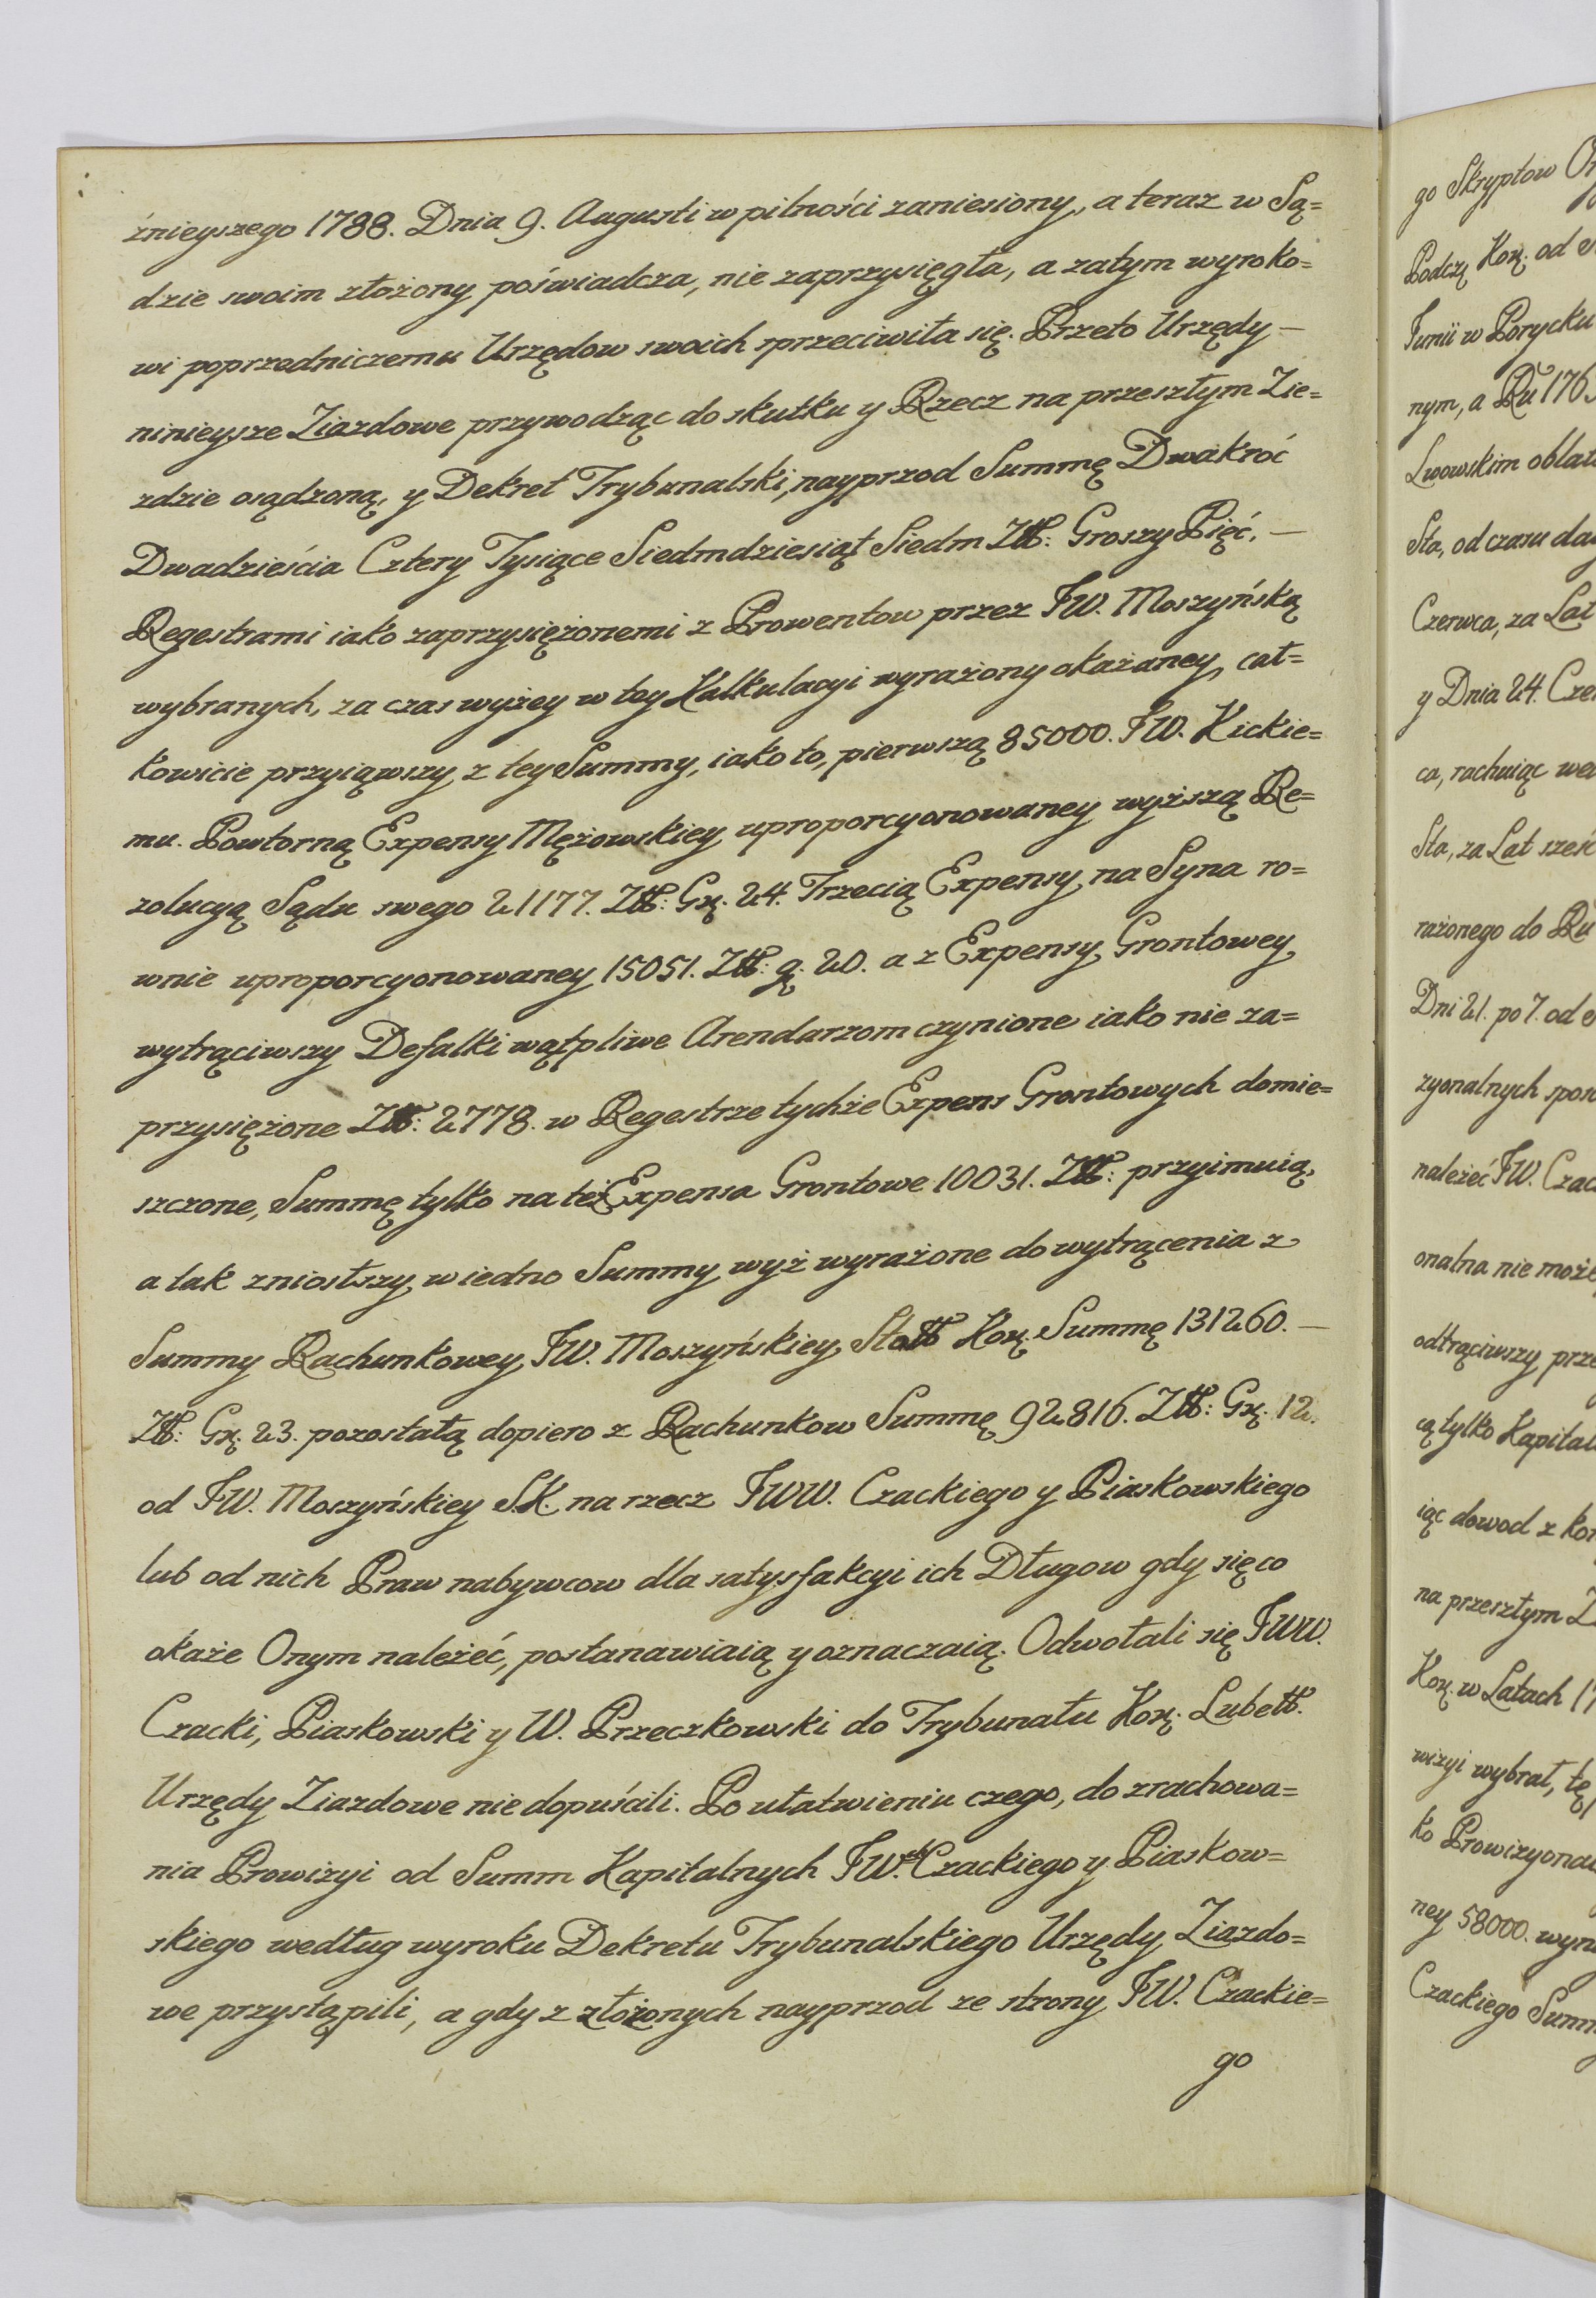 źnieyszego 1788. Dnia 9. Augusti w pilności zaniesiony, a teraz w Są=
dzie swoim złożony poświadcza, nie zaprzysięgła, a zatym wyroko=
wi poprzedniczemu Urzędow swoich sprzeciwiła się. Przeto Urzędy —
ninieysze Ziazdowe przywodząc do skutku y Rzecz na przeszłym Zie=
zdzie osądzoną, y Dekret Trybunalski, nayprzod Summę Dwakróć
Dwadzieścia Cztery Tysiące Siedmdziesiąt Siedm Złł: Groszy Pięć, —
Regestrami iako zaprzysiężonemi z Prowentow przez JW. Moszyńską
wybranych, za czas wyżey w tey Kalkulacyi wyrażony okazaney, cał=
kowicie przyiąwszy z tey Summy, iako to, pierwszą 85000. JW. Kickie=
mu. Powtorną Expensy Mężowskiey uproporcyonowaney wyższą Re=
zolucyą Sądu swego 21177. Złł: Gr. 24. Trzecią Expensy na Syna ro=
wnie uproporcyonowaney 15051. Złł: g. 20. a z Expensy Grontowey
wytrąciwszy Defalki wątpliwe Arendarzom czynione iako nie za=
przysiężone Złł: 2778. w Regestrze tychże Expens Grontowych domie=
szczone, Summę tylko na też Expensa Grontowe 10031. Złł: przyimuią,
a tak zniosłszy w iedno Summy wyż wyrażone do wytrącenia z
Summy Rachunkowey JW. Moszyńskiey Stołł Kor. Summę 131260. —
Złł: Gr. 23. pozostałą dopiero z Rachunkow Summę 92816. Złł: Gr. 12.
od JW. Moszyńskiey S.K. na rzecz JWW. Czackiego y Piaskowskiego
lub od nich Praw nabywcow dla satysfakcyi ich Długow gdy się co
okaże Onym należeć, postanawiaią y oznaczaią. Odwołali się JWW.
Czacki, Piaskowski y W. Przeczkowski do Trybunału Kor. Lubełł.
Urzędy Ziazdowe nie dopuścili. Po ułatwieniu czego, do zrachowa=
nia Prowizyi od Summ Kapitalnych JW. Czackiego y Piaskow=
skiego według wyroku Dekretu Trybunalskiego Urzędy Ziazdo=
we przystąpili, a gdy z złożonych nayprzod ze strony JW. Czackie=
go
go Skryptow
Podcz. Kor. od
Junii w Porycku
nym, a Ru 176
Lwowskim
Sta, od czasu
Czerwca, za Lat
y Dnia 24.
ca, rachuiąc
Sta, za Lat sześć
rażonego do Ru
Dni 21. po 7. od
zyonalnych
należeć JW.
onalna nie może
odtrąciwszy
cą tylko
iąc dowod z
na przeszłym
Kor. w Latach
wizyi wybrał, tę
ko
ney 58000.
Czackiego